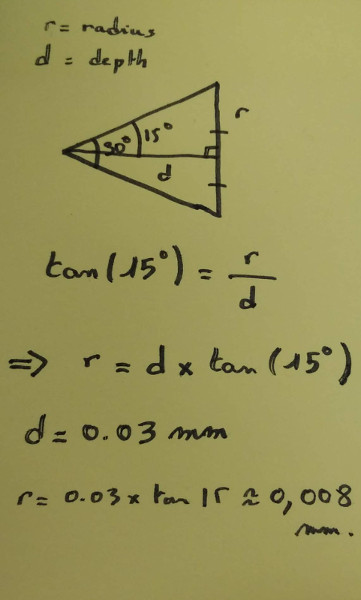 r = radius
d = depth
r
30° 15°
d
tan(15°) = r/d
=> r = d x tan(15°)
d = 0.03 mm
r = 0.03 x tan 15 ≈ 0,008
mm.